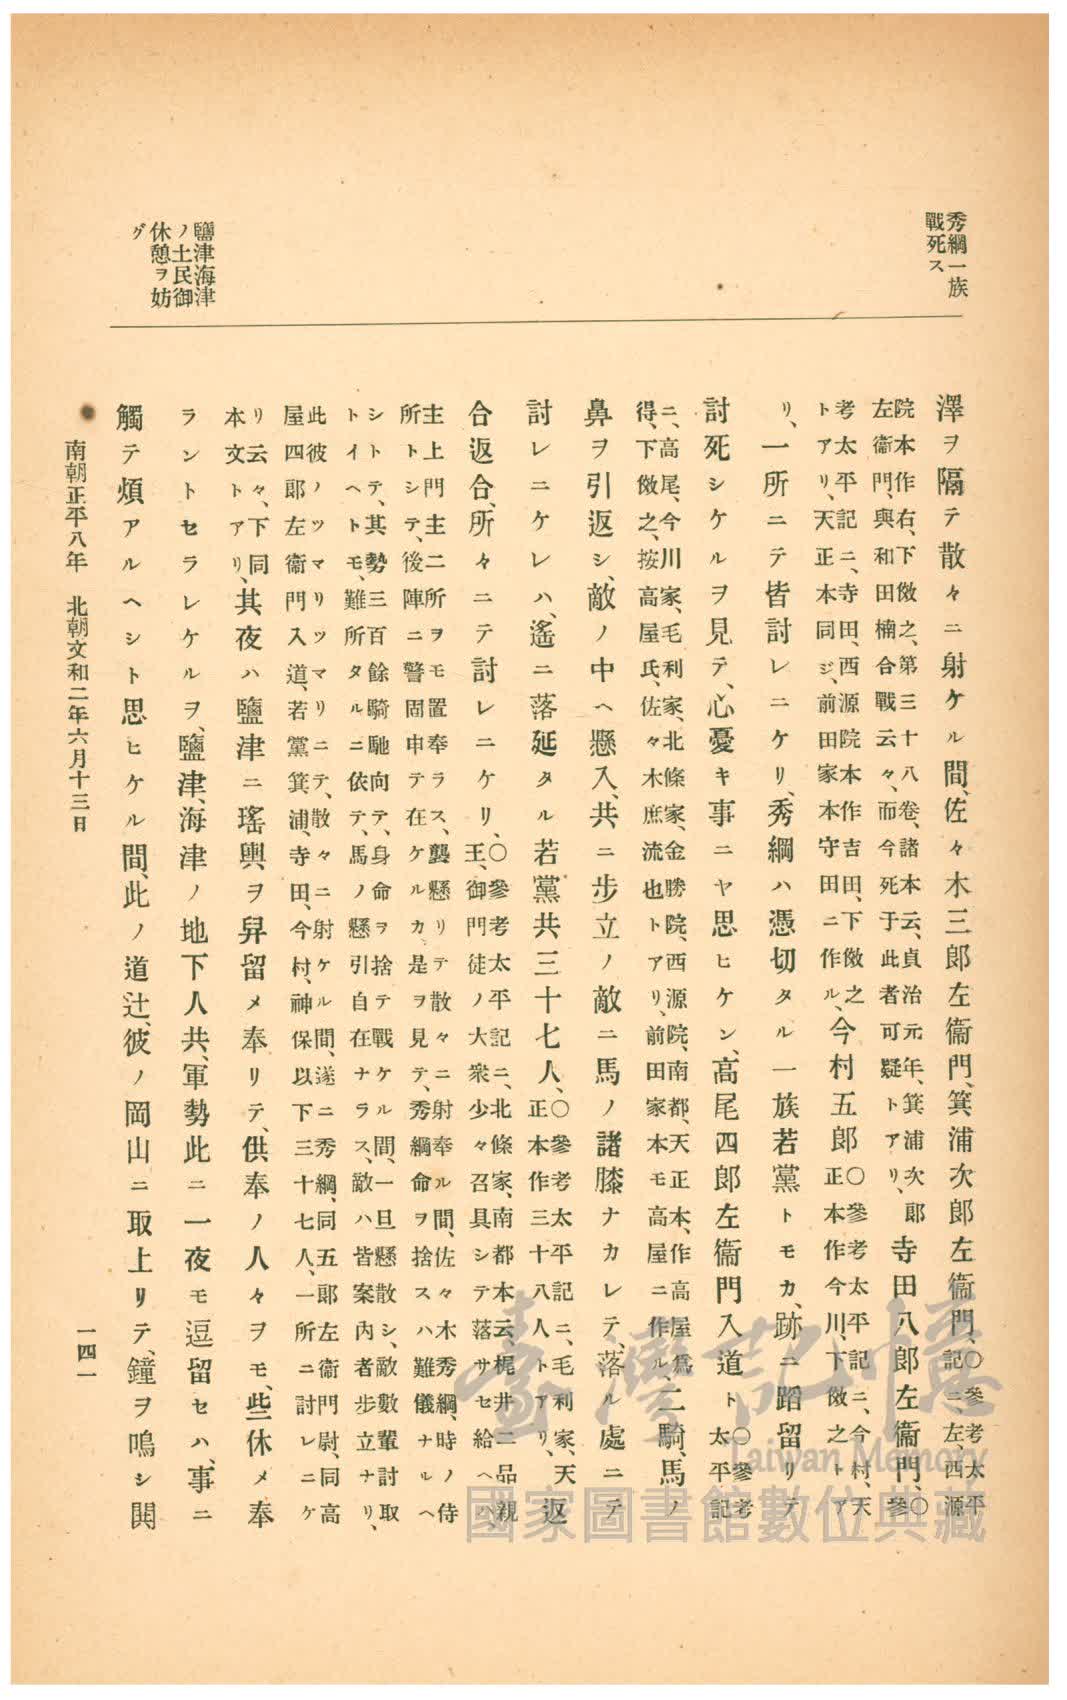 秀綱一族
戰死ス
鹽津海津
ノ土民御
休憩ヲ妨
グ
澤ヲ隔テ散々ニ射ケル間、佐々木三郎左衞門、箕浦次郎左衞門、〇參考太平記ニ、左、西源
院本作右、下傚之、第三十八卷、諸本云、貞治元年、箕浦次郎左衞門、與和田楠合戰云々、而今死于此者可疑トアリ、寺田八郎左衞門、〇參
考太平記ニ、寺田、西源院本作吉田、下傚之トアリ、天正本同ジ、前田家本守田ニ作ル、今村五郎〇參考太平記ニ、今村、天正本作今川、下傚之トア
リ、一所ニテ皆討レニケリ、秀綱ハ憑切タル一族若黨トモカ、跡ニ蹈留リテ
討死シケルヲ見テ、心憂キ事ニヤ思ヒケン、高尾四郎左衞門入道ト〇參考太平記
ニ、高尾、今川家、毛利家、北條家、金勝院、西源院、南都、天正本、作高屋爲得、下傚之、按高屋氏、佐々木庶流也トアリ、前田家本モ高屋ニ作ル、二騎、馬ノ
鼻ヲ引返シ、敵ノ中ヘ懸入、共ニ步立ノ敵ニ馬ノ諸膝ナカレテ、落ル處ニテ
討レニケレハ、遙ニ落延タル若黨共三十七人、〇參考太平記ニ、毛利家、天正本作三十八人トアリ、返
合返合、所々ニテ討レニケリ、〇參考太平記ニ、北條家、南都本云、梶井二品親王、御門徒ノ大衆少々召具シテ落サセ給ヘハ、
主上門主二所ヲモ置奉ラス、襲懸リテ散々ニ射奉ル間、佐々木秀綱、時ノ侍所トシテ、後陣ニ警固申テ在ケルカ、是ヲ見テ、秀綱命ヲ捨スハ難儀ナルヘ
シトテ、其勢三百餘騎馳向テ、身命ヲ捨テ戰ケル間、一旦懸散シ、敵數輩討取トイヘトモ、難所タルニ依テ、馬ノ懸引自在ナラス、敵ハ皆案內者步立ナリ、
此彼ノツマリツマリニテ、散々ニ射ケル間、遂ニ秀綱、同五郎左衞門尉、同高屋四郎左衞門入道、若黨箕浦、寺田、今村、神保以下三十七人、一所ニ討レニケ
リ云々、下同本文トアリ、其夜ハ鹽津ニ瑤輿ヲ舁留メ奉リテ、供奉ノ人々ヲモ、些休メ奉
ラントセラレケルヲ、鹽津、海津ノ地下人共、軍勢此ニ一夜モ逗留セハ、事ニ
觸テ煩アルヘシト思ヒケル間、此ノ道辻、彼ノ岡山ニ取上リテ、鐘ヲ鳴シ鬨
南朝正平八年 北朝文和二年六月十三日
一四一
臺灣記憶
Taiwan Memory
國家圖書館數位典藏